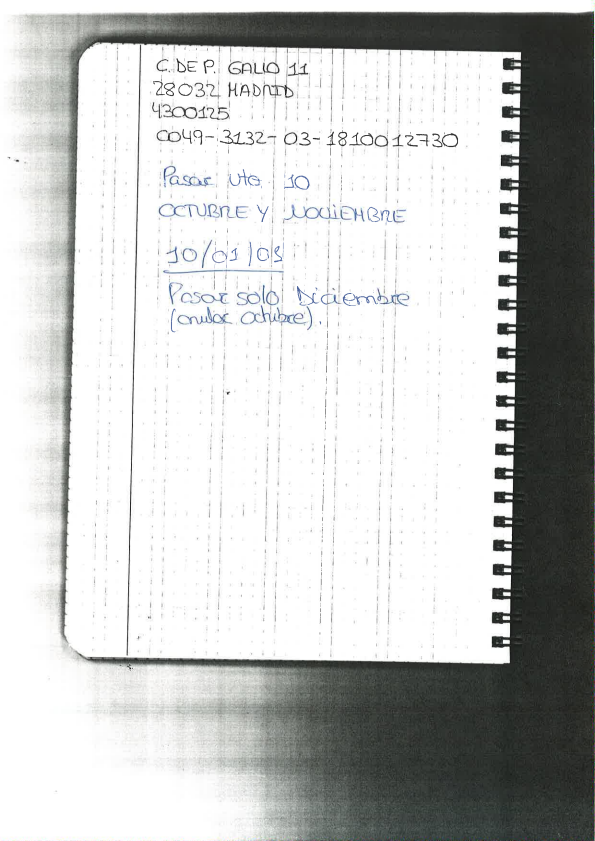 C. DE P. GALLO 11
28032 MADRID
4300125
0049-3132-03-1810012730
Pasar vto 10
OCTUBRE Y NOVIEMBRE
10/01/03
Pasar solo Diciembre
(anular octubre).